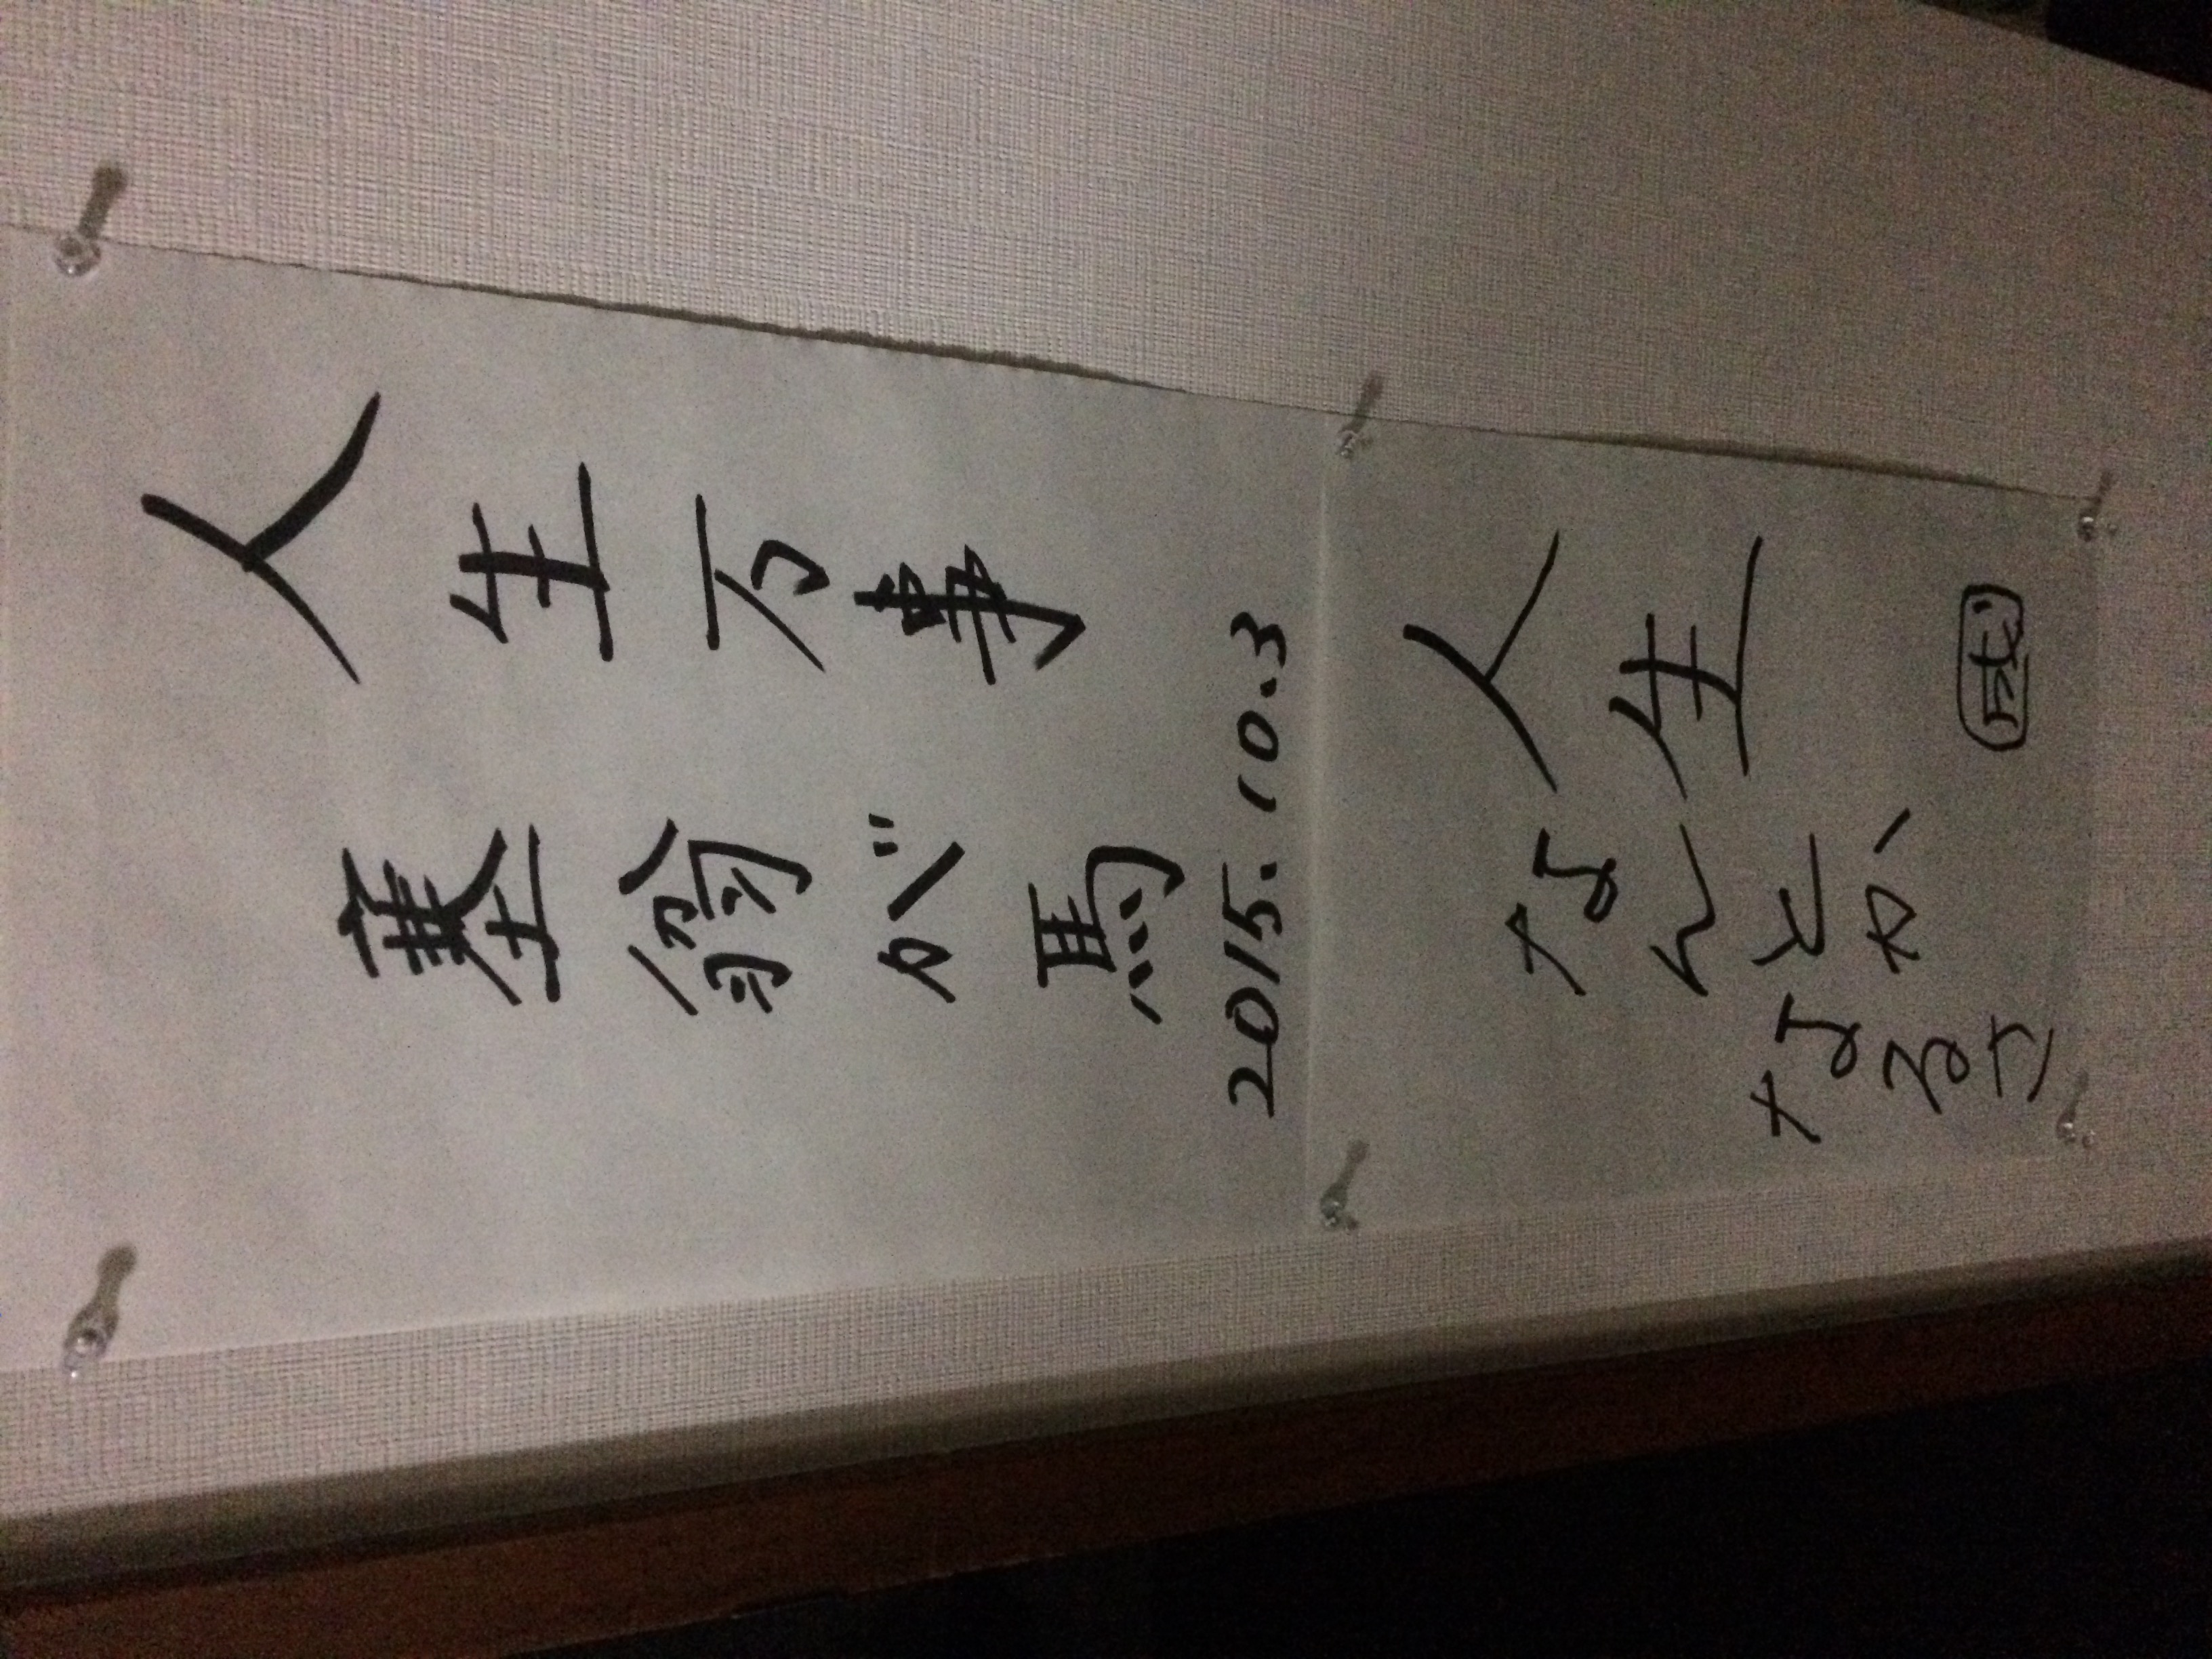 人生万事
塞翁が馬
2015.10.3
人生
なんとか
なるさ
成